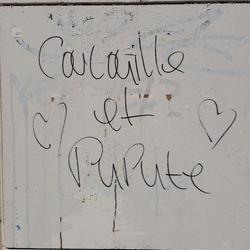 Cacaille
et
Pupute